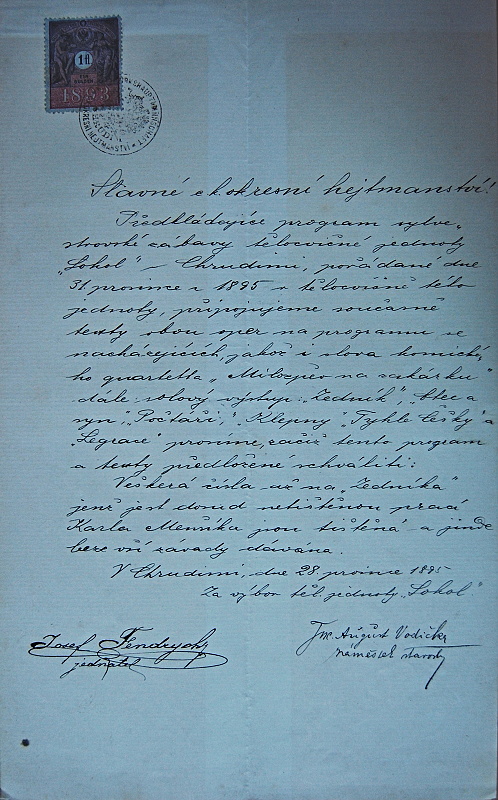 1 fl
1893
OKRESNÍ HEJTMANSTVÍ
Slavné c. k. okresní hejtmanství!
Předkládajíce program sylve-
strovské zábavy tělocvičné jednoty
„Sokol" v Chrudimi, pořádané dne
31 prosince r 1895 v tělocvičně této
jednoty, připojujeme současně
texty obou oper na programu se
nacházejících, jakož i slova komické-
ho quartetta „
dále: solový výstup: „Zedník", Otec a
syn", Počtáři", Klepny", Tyhle češky" a
„Legrace" prosíme, račiž tento program
a texty předložené schváliti:
Veškerá čísla až na „Zedníka"
jenž jest dosud netištěnou prací
Karla Menšíka jsou tištěná a jinde
beze vší závady dávána.
V Chrudimi, dne 28. prosince 1895
Za výbor těl. jednoty „Sokol"
Josef Fendrych
jednatel
August Vodička
náměstek starosty